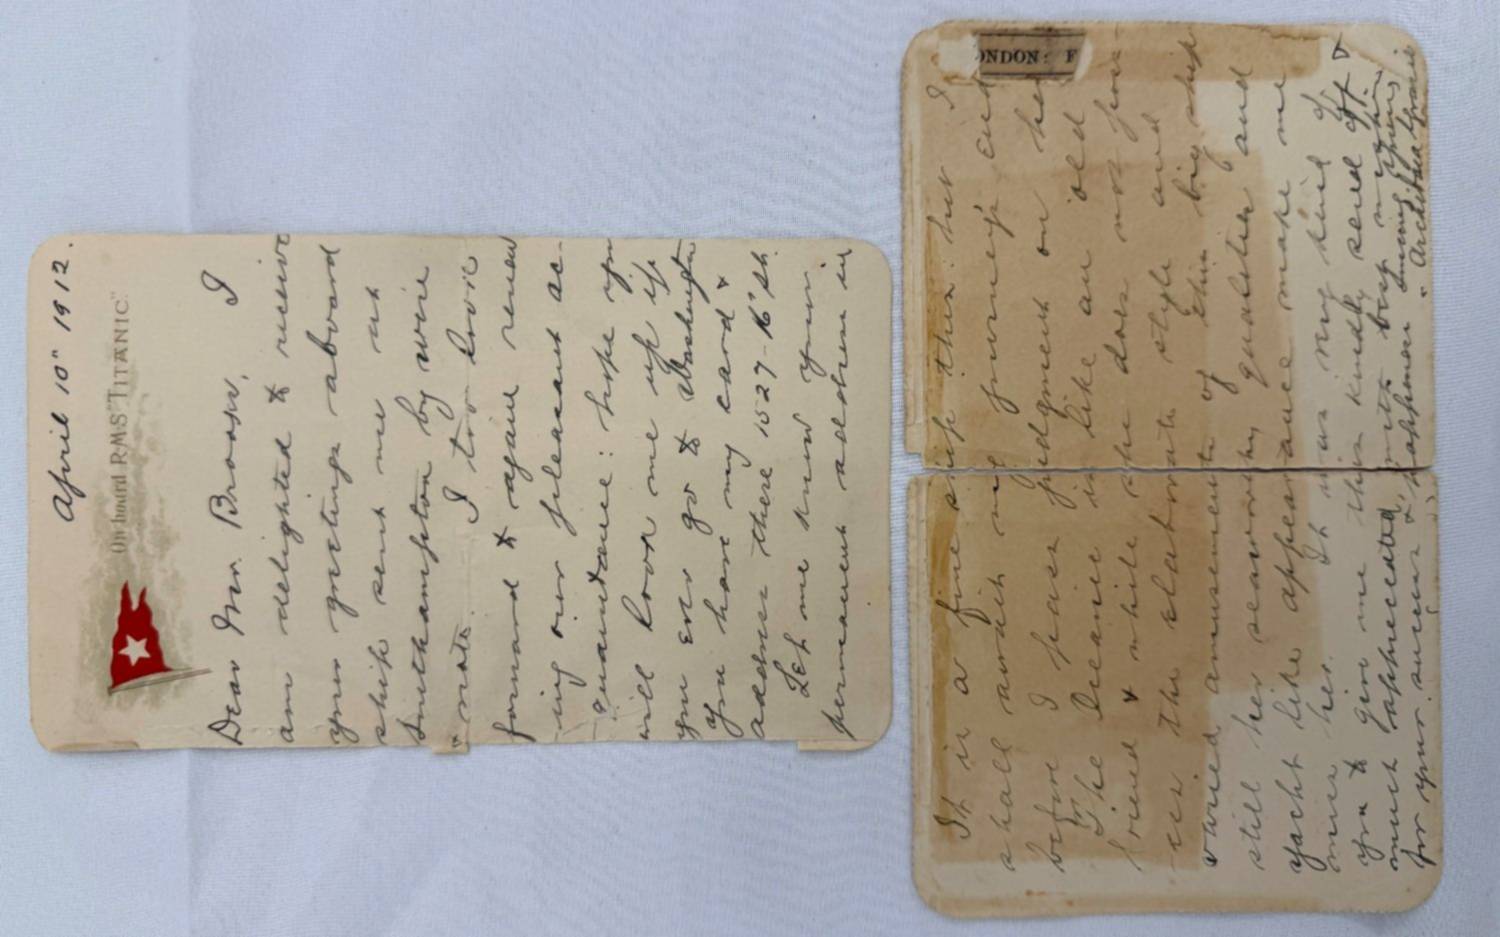 April 10" 1912.
On board R.M.S "TITANIC."
Dear Mr. Brooks, I
am delighted to receive
your greetings aboard
ship sent me at
Southampton by wire
& note. I too look
forward to again renew
-ing our pleasant ac-
quaintance: hope you
will look me up if
you ever go to Washington
You have my card &
address there 1527-16" St.
Let me know your
permanent address in
ONDON F
It is a fine ship this but I
shall await my journey's end
before I pass judgment on her
The Oceanic is like an old
friend & while she does not pos-
-sess the elaborate style and
varied amusement of this big ship
still her seaworthy qualities and
yacht like appearance make me
miss her. It was very kind of
you to give me this kindly send off &
much appreciated, with best wishes
for your success & happiness
"Archibald Gracie